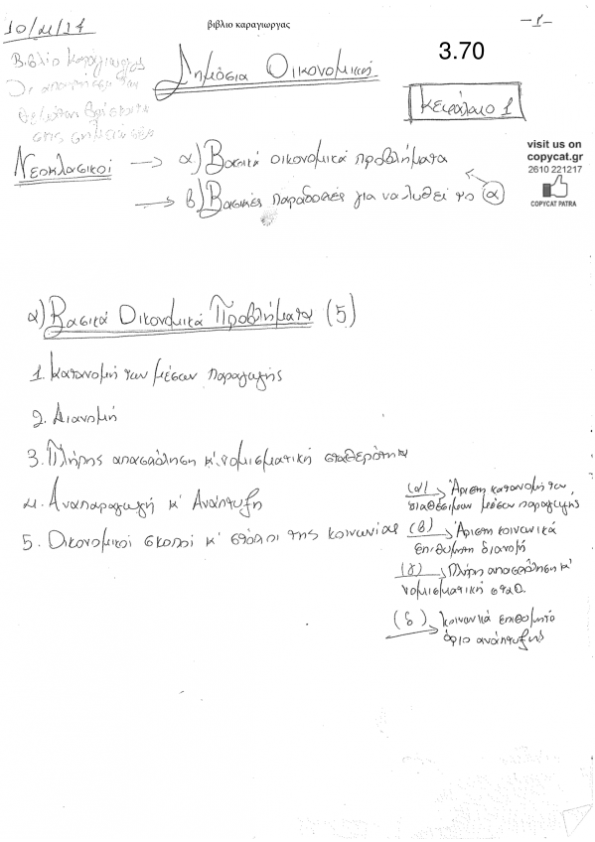 10/4/14
βιβλιο καραγιωργας
-1-
Βιβλίο Καράγιωργας
Δημόσια Οικονομική
3.70
Κεφάλαιο 1
visit us on
copycat.gr
2610 221217
COPYCAT PATRA
Νεοκλασικοί → α) Βασικά οικονομικά προβλήματα
→ β) Βασικές παραδοχές για να λυθεί το α
α) Βασικά Οικονομικά Προβλήματα (5)
1. Κατανομή των μέσων παραγωγής
2. Διανομή
3. Πλήρης απασχόληση κ' νομισματική σταθερότητα
4. Αναπαραγωγή κ' Ανάπτυξη
5. Οικονομικοί σκοποί κ' στόχοι της κοινωνίας
(α) → Άριστη κατανομή των
διαθέσιμων μέσων παραγωγής
(β) → Άριστη κοινωνικά
επιθυμητή διανομή
(γ) → Πλήρη απασχόληση κ'
νομισματική σταθ.
(δ) → κοινωνικά επιθυμητό
όριο ανάπτυξης